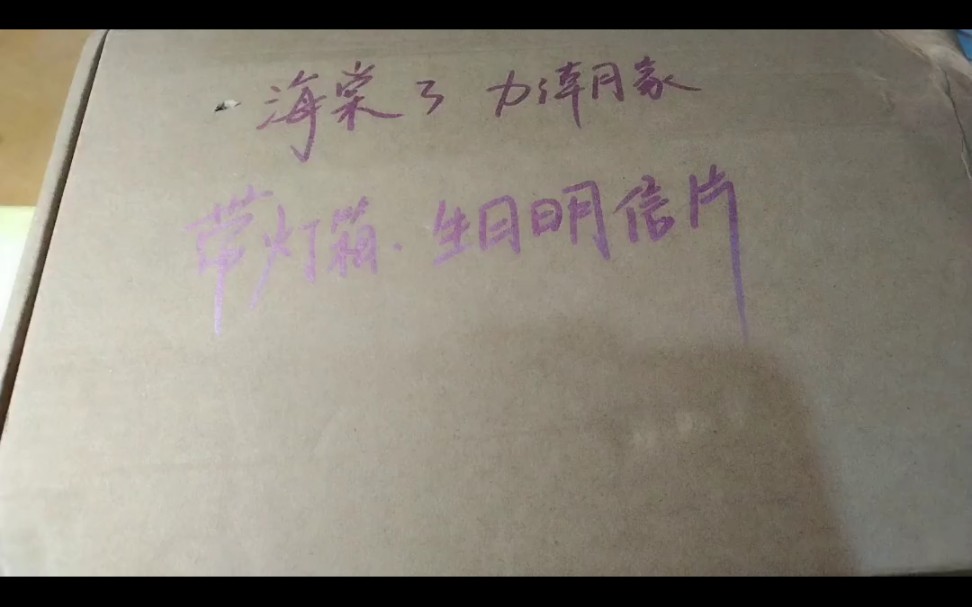 海棠了 力潮家
带灯箱.生日明信片